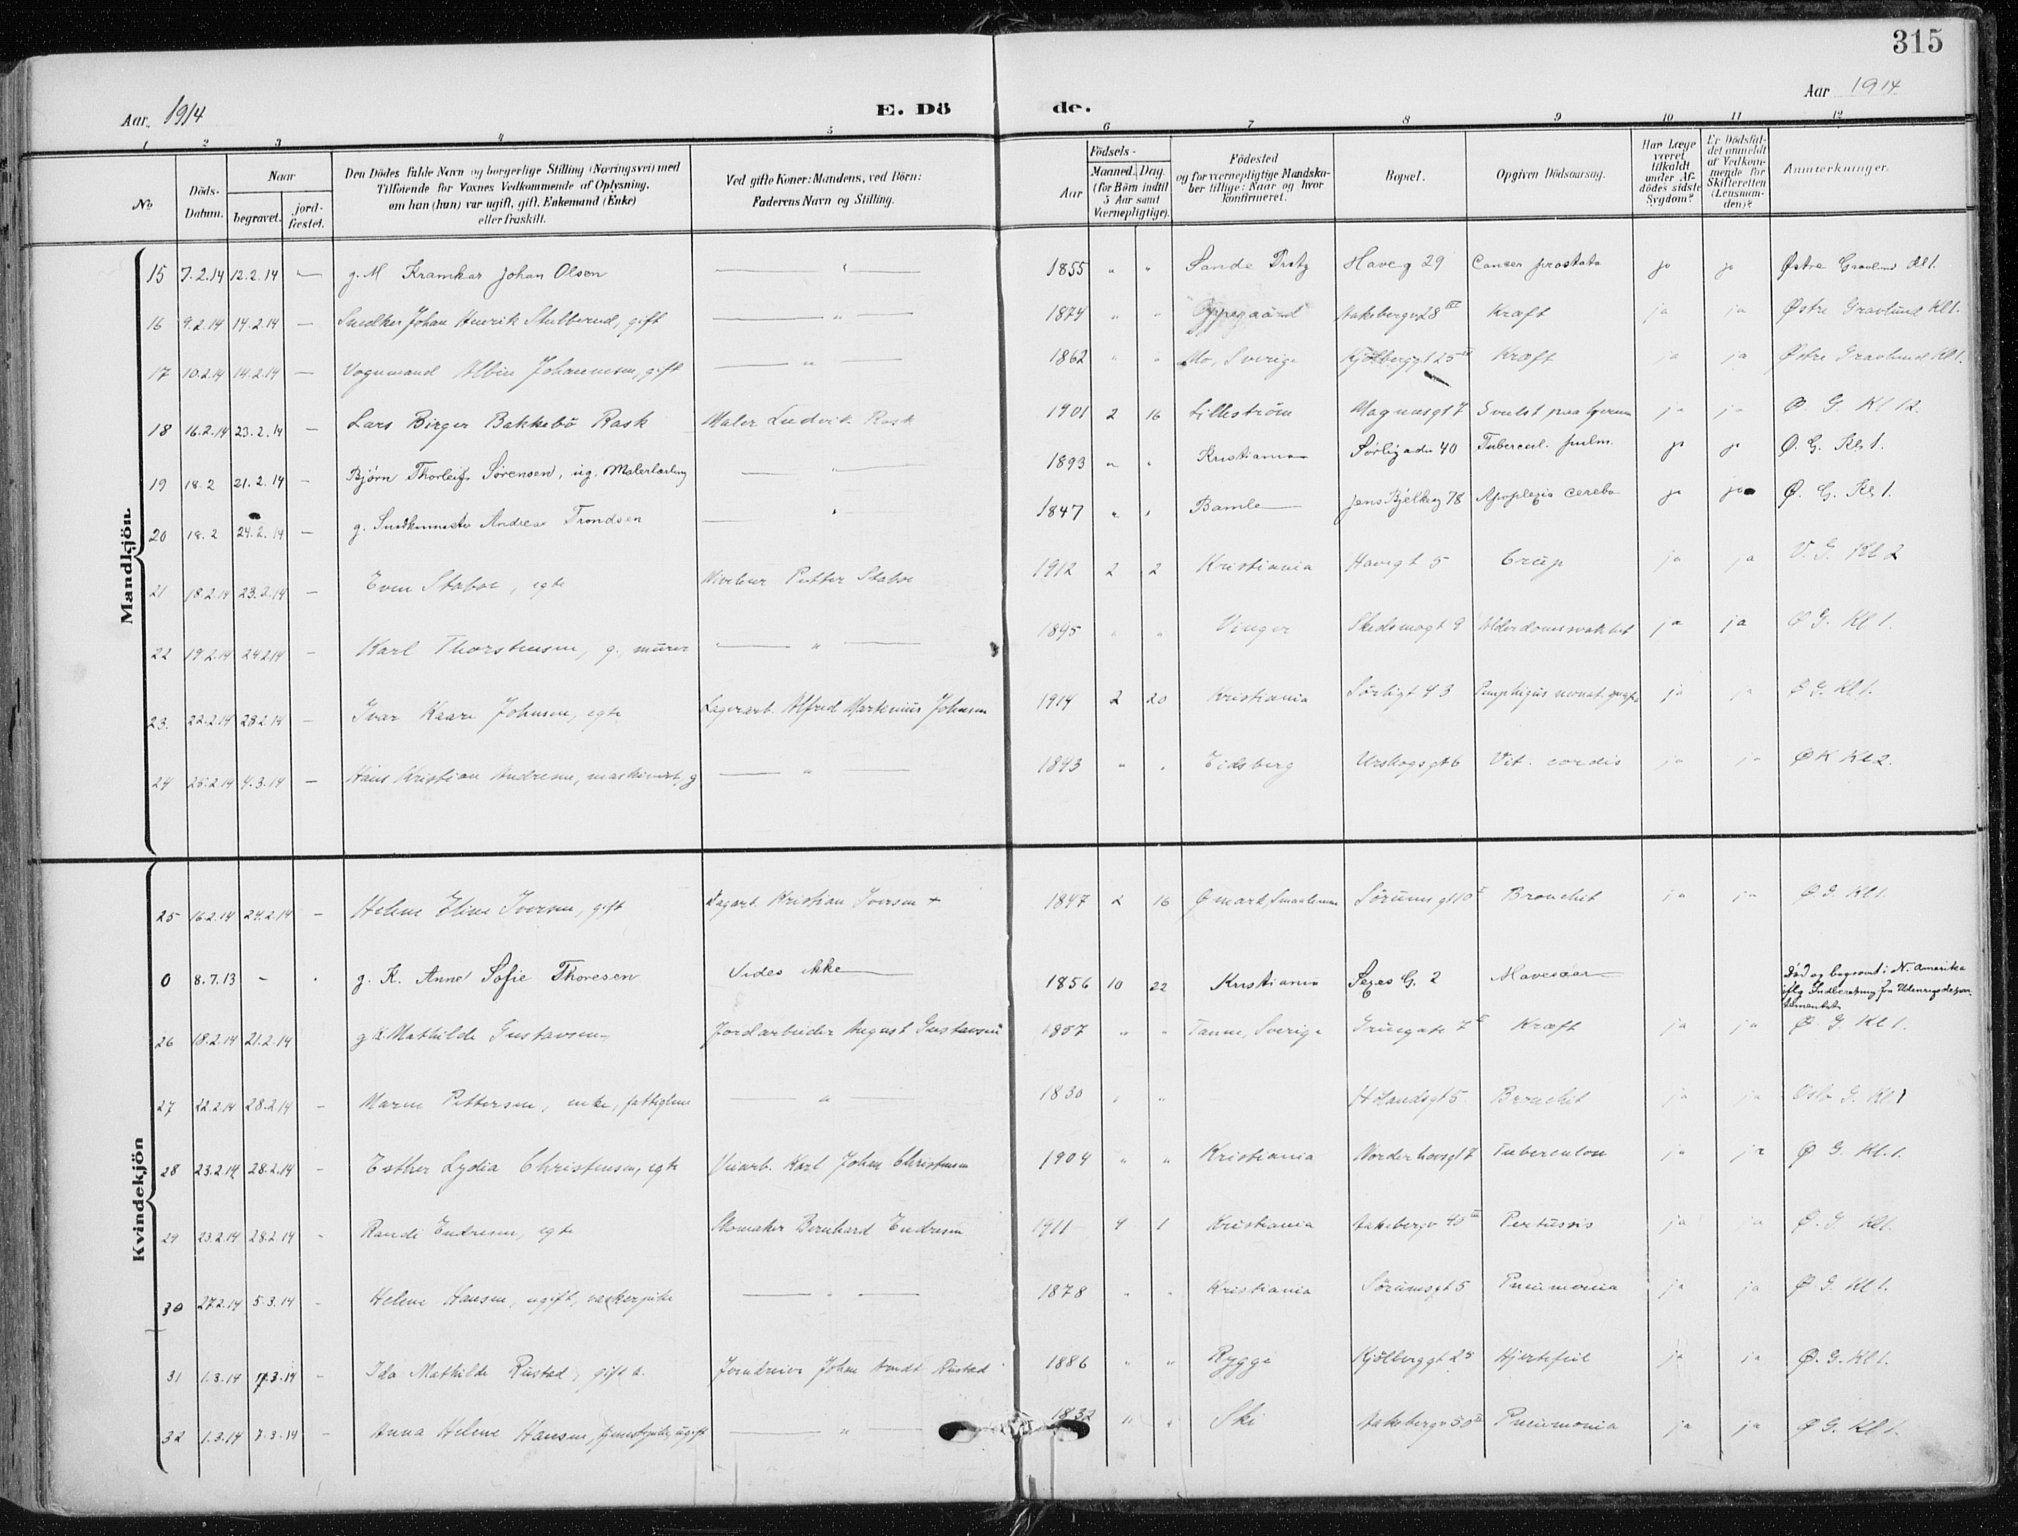 315
Aar 1914 E. Dö de. Aar 1914
1 2 3 4 5 6 7 8 9 10 11 12
No
Döds-Datum.
Naar
begravet. jord-fæstet.
Den Dödes fulde Navn og borgerlige Stilling (Næringsvei) med
Tilföiende for Voxnes Vedkommende af Oplysning,
om han (hun) var ugift, gift, Enkemand (Enke)
eller fraskilt.
Ved gifte Koner: Mandens, ved Börn:
Faderens Navn og Stilling.
Födsels-
Aar
Maaned. Dag.
(for Börn indtil
5 Aar samt
Værnepligtige).
Födested
og for værnepligtige Mandska-
ber tillige: Naar og hvor
konfirmeret.
Bopæl.
Opgiven Dödsaarsag.
Har Læge
været
tilkaldt
under Af-
dödes sidste
Sygdom?
Er Dödsfal-
det anmeldt
af Vedkom-
mende for
Skifteretten
(Lensman-
den)?
Anmærkninger.
Mandkjön.
15 7.2.14 12.2.14 — g. M Johan Olsen — " — 1855 " " Sande 29 Cancer prostata ja ja Østre Gravlund Kl 1.
16 9.2.14 14.2.14 — Snedker Johan Henrik gift — " — 1874 " " Oppegaard Aakebergv 28 III Kræft ja ja Østre Gravlund Kl 1.
17 10.2.14 14.2.14 — Vognmand Albin Johannesen, gift — " — 1862 " " Mo, Sverige Kjølberggt 25 Kræft ja ja Østre Gravlund Kl 1.
18 16.2.14 23.2.14 — Lars Birger Bakkebö Rask Maler Ludvik Rask 1901 2 16 Lilleström Magnusgt 7 Svulst paa hjernen ja ja Ø G Kl 12.
19 18.2 21.2.14 — Bjørn Thorleif Sørensen, ug. Malerlærling — " — 1893 " " Kristiania Sørligaden 40 Tubercul. pulm. ja ja Ø. G. Kl 1.
20 18.2 24.2.14 — g. Andreas Trondsen — " — 1847 " " Bamle Jens Bjelkeg 78 Apoplexia cerebri ja ja Ø. G. Kl 1.
21 18.2.14 23.2.14 — Even Staboe, egte Petter Staboe 1912 2 2 Kristiania Havegt 5 Crup ja ja V. G. Kl 2
22 19.2.14 24.2.14 — Karl Thorstensen, g. murer — " — 1895 " " Vinger Skedsmogt 9 Alderdomssvakhet ja ja Ø G. Kl 1.
23. 22.2.14 28.2.14 — Ivar Kaare Johnsen, egte Lagerarb. Alfred Martinius Johnsen 1914 2 20 Kristiania Sörligt 43 Pemphigus ja Ø G. Kl 1.
24 25.2.14 4.3.14 — Hans Kristian Andresen, g — " — 1843 " " Eidsberg Urskogsgt 6 Vit. cordis ja ja Ø K Kl 2.
Kvindekjön
25 16.2.14 24.2.14 — Helene Eline Iversen, gift Dagarb. Kristian Iversen + 1847 2 16 Ømark, Smaalenene Sörumsgt 10 Bronchit ja ja Ø. G. Kl 1.
0 8.7.13 - . g. K. Anne Sofie Thoresen Vides ikke 1856 10 22 Kristiania G. 2 Mavesaar Død og begravet i N. Amerika
iflg Indberetning fra Udenrigsdepar-
tementet
26 18.2.14 21.2.14 g K. Mathilde Gustavsen Jordarbeider August Gustavsen 1857 " " Tanum, Sverige 7 Kræft ja ja Ø G. Kl 1.
27 22.2.14 28.2.14 — Maren Pettersen, enke, fattiglem — " — 1830 " " Hölandsgt 5 Bronchit ja ja Oslo G. Kl 1
28 23.2.14 28.2.14 — Esther Lydia Christensen, egte Karl Johan Christensen 1904 " " Kristiania Norderhovsgt 7 Tuberculose ja ja Ø G. Kl 1.
29 23.2.14 28.2.14 — Randi Endresen, egte Skomaker Bernhard Endresen 1911 4 1 Kristiania Aakebergv 40 III Pertussis ja ja Ø. G. Kl 1.
30 27.2.14 5.3.14 - Helene Hansen, ugift, vaskerpike — " — 1878 " " Kristiania Sörumsgt 5 Pneumonia ja ja Ø G. Kl 1.
31 1.3.14 7.3.14 - Ida Mathilde Rustad, gift Johan Arndt Rustad 1886 " " Rygge Kjölberggt 25 Hjertefeil ja ja Ø. G. Kl 1.
32 1.3.14 7.3.14 - Anna Helene Hansen, tjenestepike, ugift — " — 1832 " " Ski Aakebergv 50 Pneumonia ja ja Ø G. Kl 1.